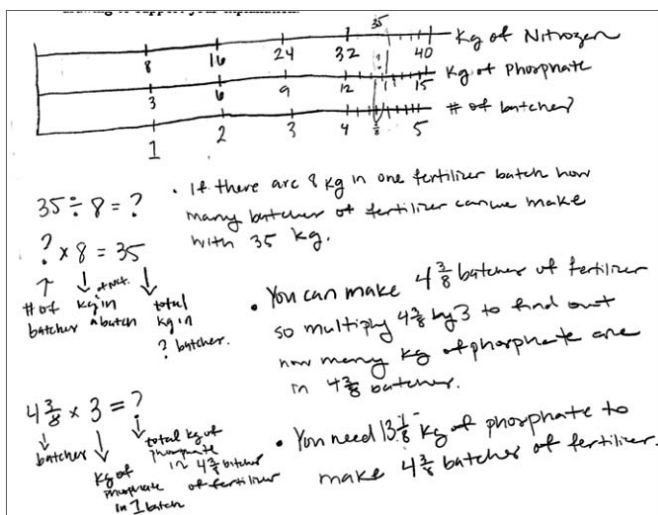 drawing to support your explanation.
35
8 16 24 32 40 Kg of Nitrogen
?
3 6 9 12 15 Kg of Phosphate
1 2 3 4 3/8 5 # of batches?
35 ÷ 8 = ?
? × 8 = 35
# of batches
kg in a batch
total kg in ? batches.
• If there are 8 kg in one fertilizer batch how
many batches of fertilizer can we make
with 35 kg.
• You can make 4 3/8 batches of fertilizer
so multiply 4 3/8 by 3 to find out
how many kg of phosphate are
in 4 3/8 batches.
4 3/8 × 3 = ?
batches
Kg of phosphate in 1 batch
total kg of phosphate in 4 3/8 batches of fertilizer
• You need 13 1/8 kg of phosphate to
make 4 3/8 batches of fertilizer.